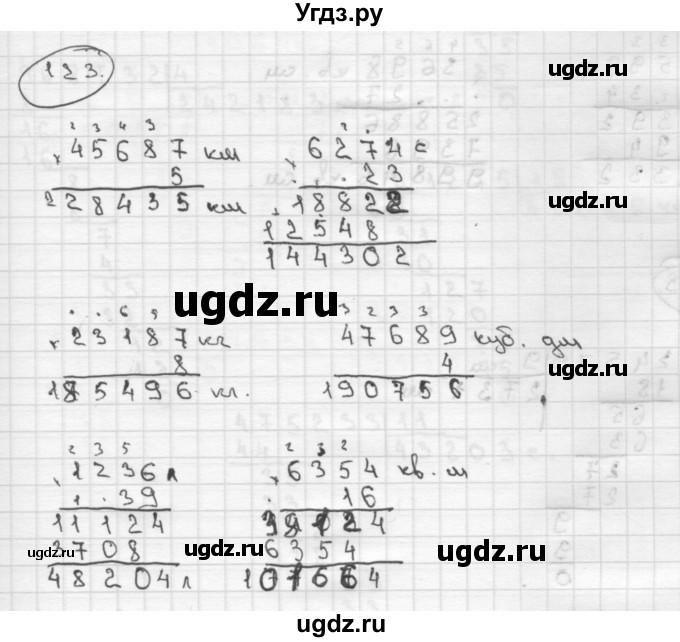 Угдз.ру
123.
ugdz.ru
2 3 4 3
× 45687 км
5
228435 км
2
× 6274 с
23
18822
12548
144302
ugdz.ru
ugdz.ru
6 5
× 23187 кг
8
185496 кг.
3 2 3 3
47689 куб. дм
4
190756
ugdz.ru
2 3 5
× 1236 л
39
11124
3708
48204 л
2 3 2
× 6354 кв. м
16
38124
6354
101664
ugdz.ru
ugdz.ru
ugdz.ru